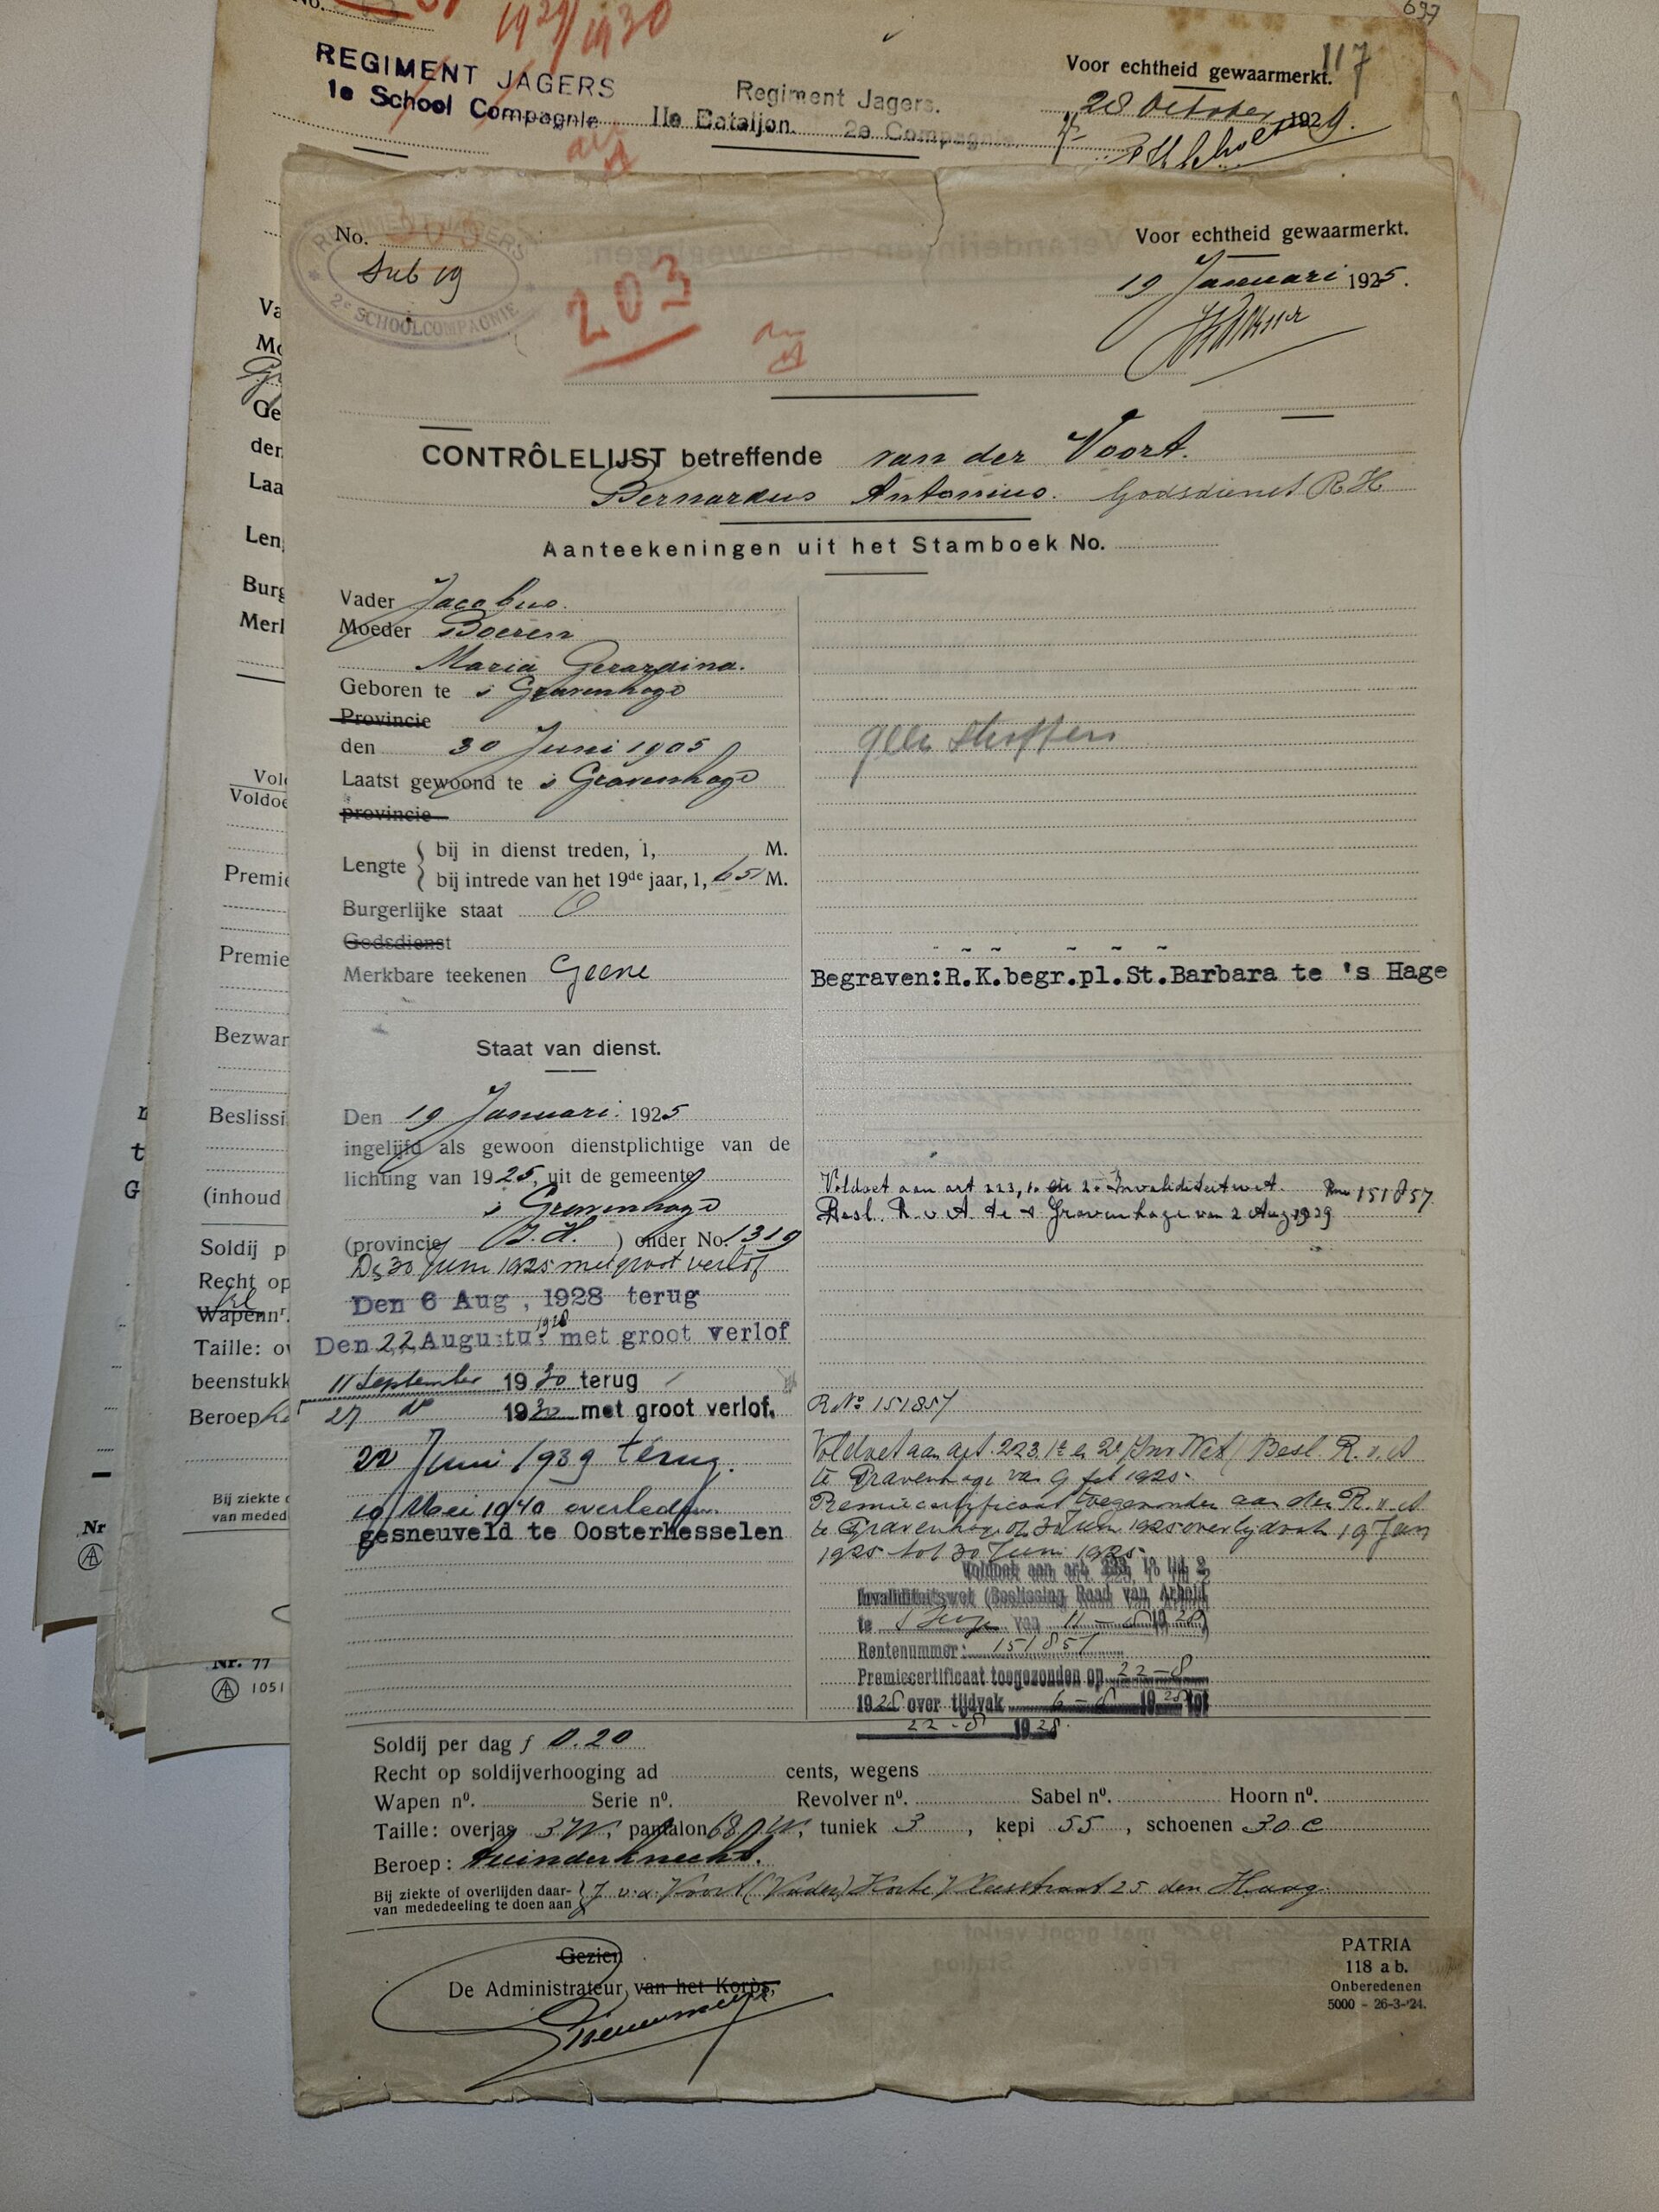 1929/1930
697
117
REGIMENT JAGERS
1e School Compagnie
Regiment Jagers.
IIe Bataljon. 2e Compagnie.
Voor echtheid gewaarmerkt.
28 October 1929.
REGIMENT JAGERS
2e SCHOOLCOMPAGNIE
No. 303
Sub 19
203
Voor echtheid gewaarmerkt.
19 Januari 1925.
CONTRÔLELIJST betreffende van der Voort.
Bernardus Antonius. Godsdienst R.K
Aanteekeningen uit het Stamboek No.
Vader Jacobus.
Moeder Boeren
Maria Gerardina.
Geboren te s Gravenhage
Provincie
den 30 Juni 1905
Laatst gewoond te s Gravenhage
provincie
Lengte
bij in dienst treden, 1, M.
bij intrede van het 19de jaar, 1,651 M.
Burgerlijke staat O
Godsdienst
Merkbare teekenen Geene
Begraven:R.K.begr.pl.St.Barbara te 's Hage
Staat van dienst.
Den 19 Januari. 1925
ingelijfd als gewoon dienstplichtige van de
lichting van 1925, uit de gemeente
s Gravenhage
(provincie Z.H. ) onder No. 1319
De 30 Juni 1925 met groot verlof
Den 6 Aug, 1928 terug
Den 22 Augustus 1928 met groot verlof
11 September 1930 terug
27 do 1930 met groot verlof.
22 Juni 1939 terug.
10 Mei 1940 overleden.
gesneuveld te Oosterhesselen
Voldoet aan art 223, 1o en 2o Invaliditeitwet. Rno 151857
Besl. R v A te s Gravenhage van 2 Aug 1929
R No 151857
Voldoet aan art. 223, 1e en 2e Inv Wet/ Besl. R. v. A
te Gravenhage van 9 feb 1925.
Premiecertificaat toegezonden aan den R. v. A
te Gravenhage op 30 Juni 1925 over tijdvak 19 Jan
1925 tot 30 Juni 1925.
Voldoet aan art. 223, 1o
Invaliditeitswet (Beslissing Raad van Arbeid
te van 11
Rentenummer: 151857
Premiecertificaat toegezonden op 22-8
1928 over tijdvak 6-8 1928 tot
22-8 1928.
Soldij per dag f 0.20
Recht op soldijverhooging ad cents, wegens
Wapen no. Serie no. Revolver no. Sabel no. Hoorn no.
Taille: overjas 3 W, pantalon 68 W, tuniek 3 , kepi 55 , schoenen 30 C
Beroep: tuindersknecht.
Bij ziekte of overlijden daar-
van mededeeling te doen aan
J v.d. Voort (Vader) Korte 25 den Haag.
Gezien
De Administrateur, van het Korps,
PATRIA
118 a b.
Onberedenen
5000 - 26-3-'24.
Va
Mo
Ge
den
Laa
Len
Burg
Merk
Vold
Voldoe
Premie
Premie
Bezwar
Beslissi
(inhoud
Soldij p
Recht op
Wapennr.
Taille: ov
beenstukk
Beroep
Bij ziekte o
van meded
Nr
Nr. 77
1051